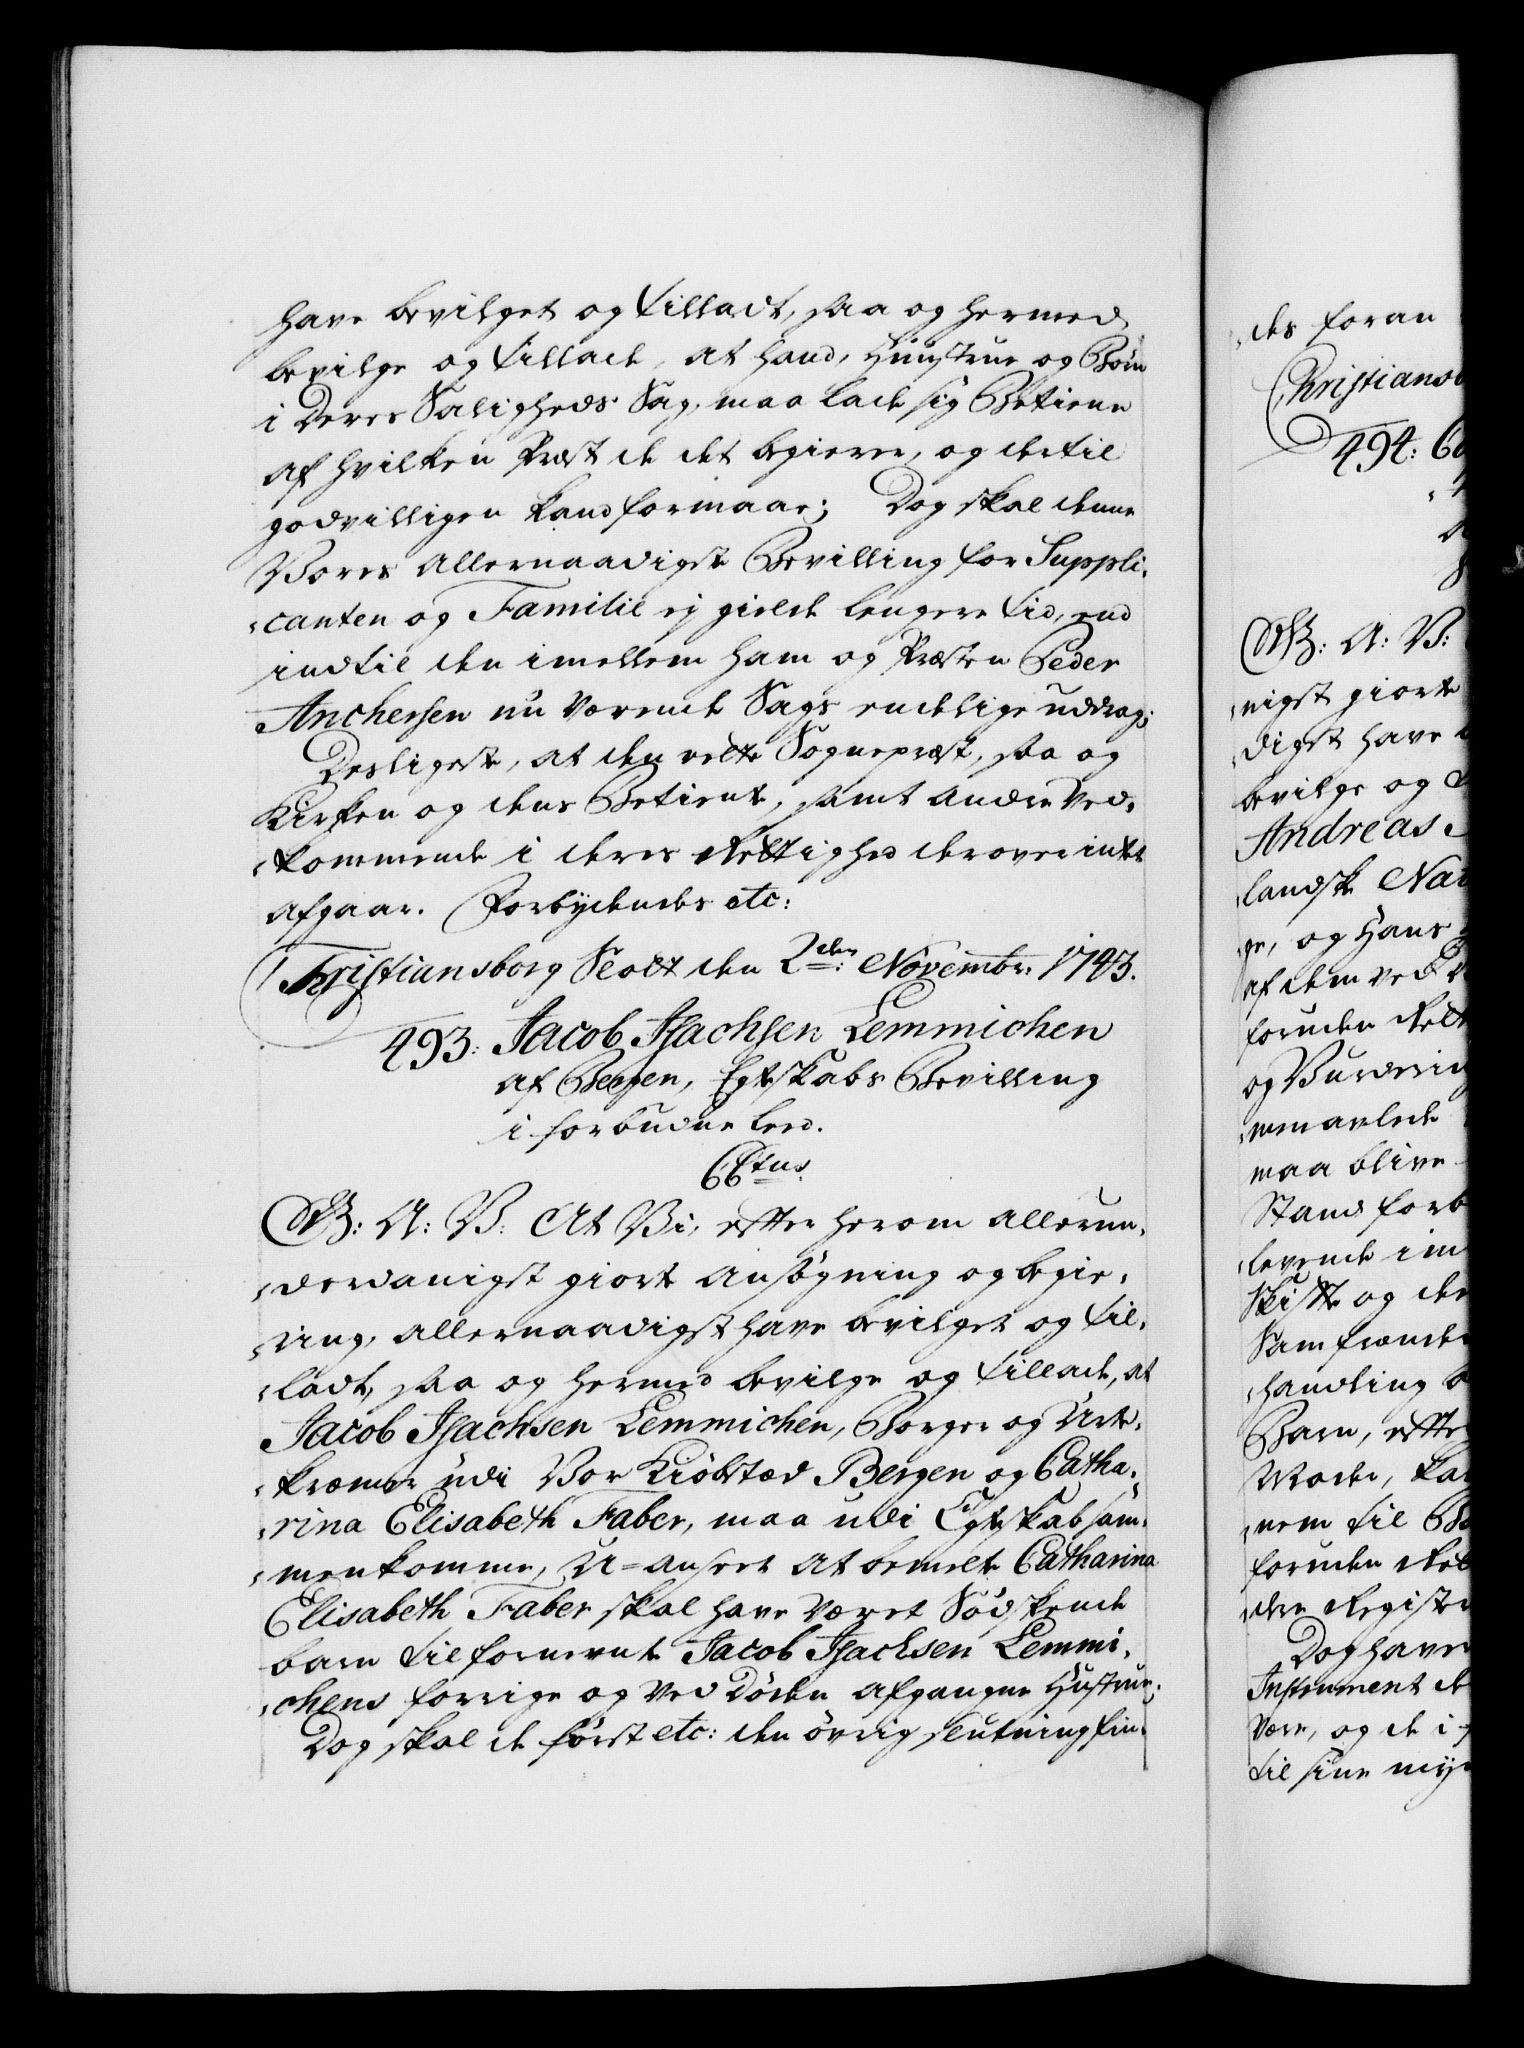 have bevilget og tilladt, saa og hermed
bevilge og tillade, at hand, Hustrue og Børn
i Deres Saligheds Sag, maa lade sig Betiene
af hvilken Præst de det begierer, og dertil
godvilligen kand formaae; Dog skal denne
Vores Allernaadigste Bevilling for Suppli-
-canten og Familie ej gielde lengere tid, end
indtil den imellem ham og Præsten Peder
Anchersen nu værende Sags endelige uddrag;
Desligeste, at den rette Sognepræst, saa og
Kirken og dens Betiente, samt andre Ved-
-kommende i deres Rettighed derover intet
afgaar. Forbydendes etc:
Christiansborg Slott den 2den: Novembr. 1743.
493: Jacob Isachsen Lemmichen
af Bergen, Egteskabs Bevilling
i forbudne leed.
C6tus
G: A: V: At Vi, efter herom allerun-
-derdanigst giorte Ansøgning og begie-
-ring, allernaadigst have bevilget og til-
-ladt, saa og hermed bevilge og tillade, at
Jacob Isachsen Lemmichen, Borger og Urte-
-kræmer udi Vor Kiøbstæd Bergen og Catha-
-rina Elisabeth Faber, maa udi Egteskab sam-
-menkomme, U-anseet at bemelte Catharina
Elisabeth Faber skal have været Sødskende
barn til fornevnte Jacob Isachsen Lemmi-
-chens forrige og ved Døden afgangne Hustrue;
Dog skal de først etc: den øvrig slutning fin-
des foran
Christians
494:
G: A: V:
nigst giorte
digst have
bevilge og
Andreas
landske
ge, og Hans
af dem ved
foruden
og Vurdering
maa blive
Stand forb
levende im
Skifte og de
Samfrænde
-handling
Barn, efter
Maade,
nem til
foruden
dre Registe
Dog have
Instrument de
være, og de i
til sine myn